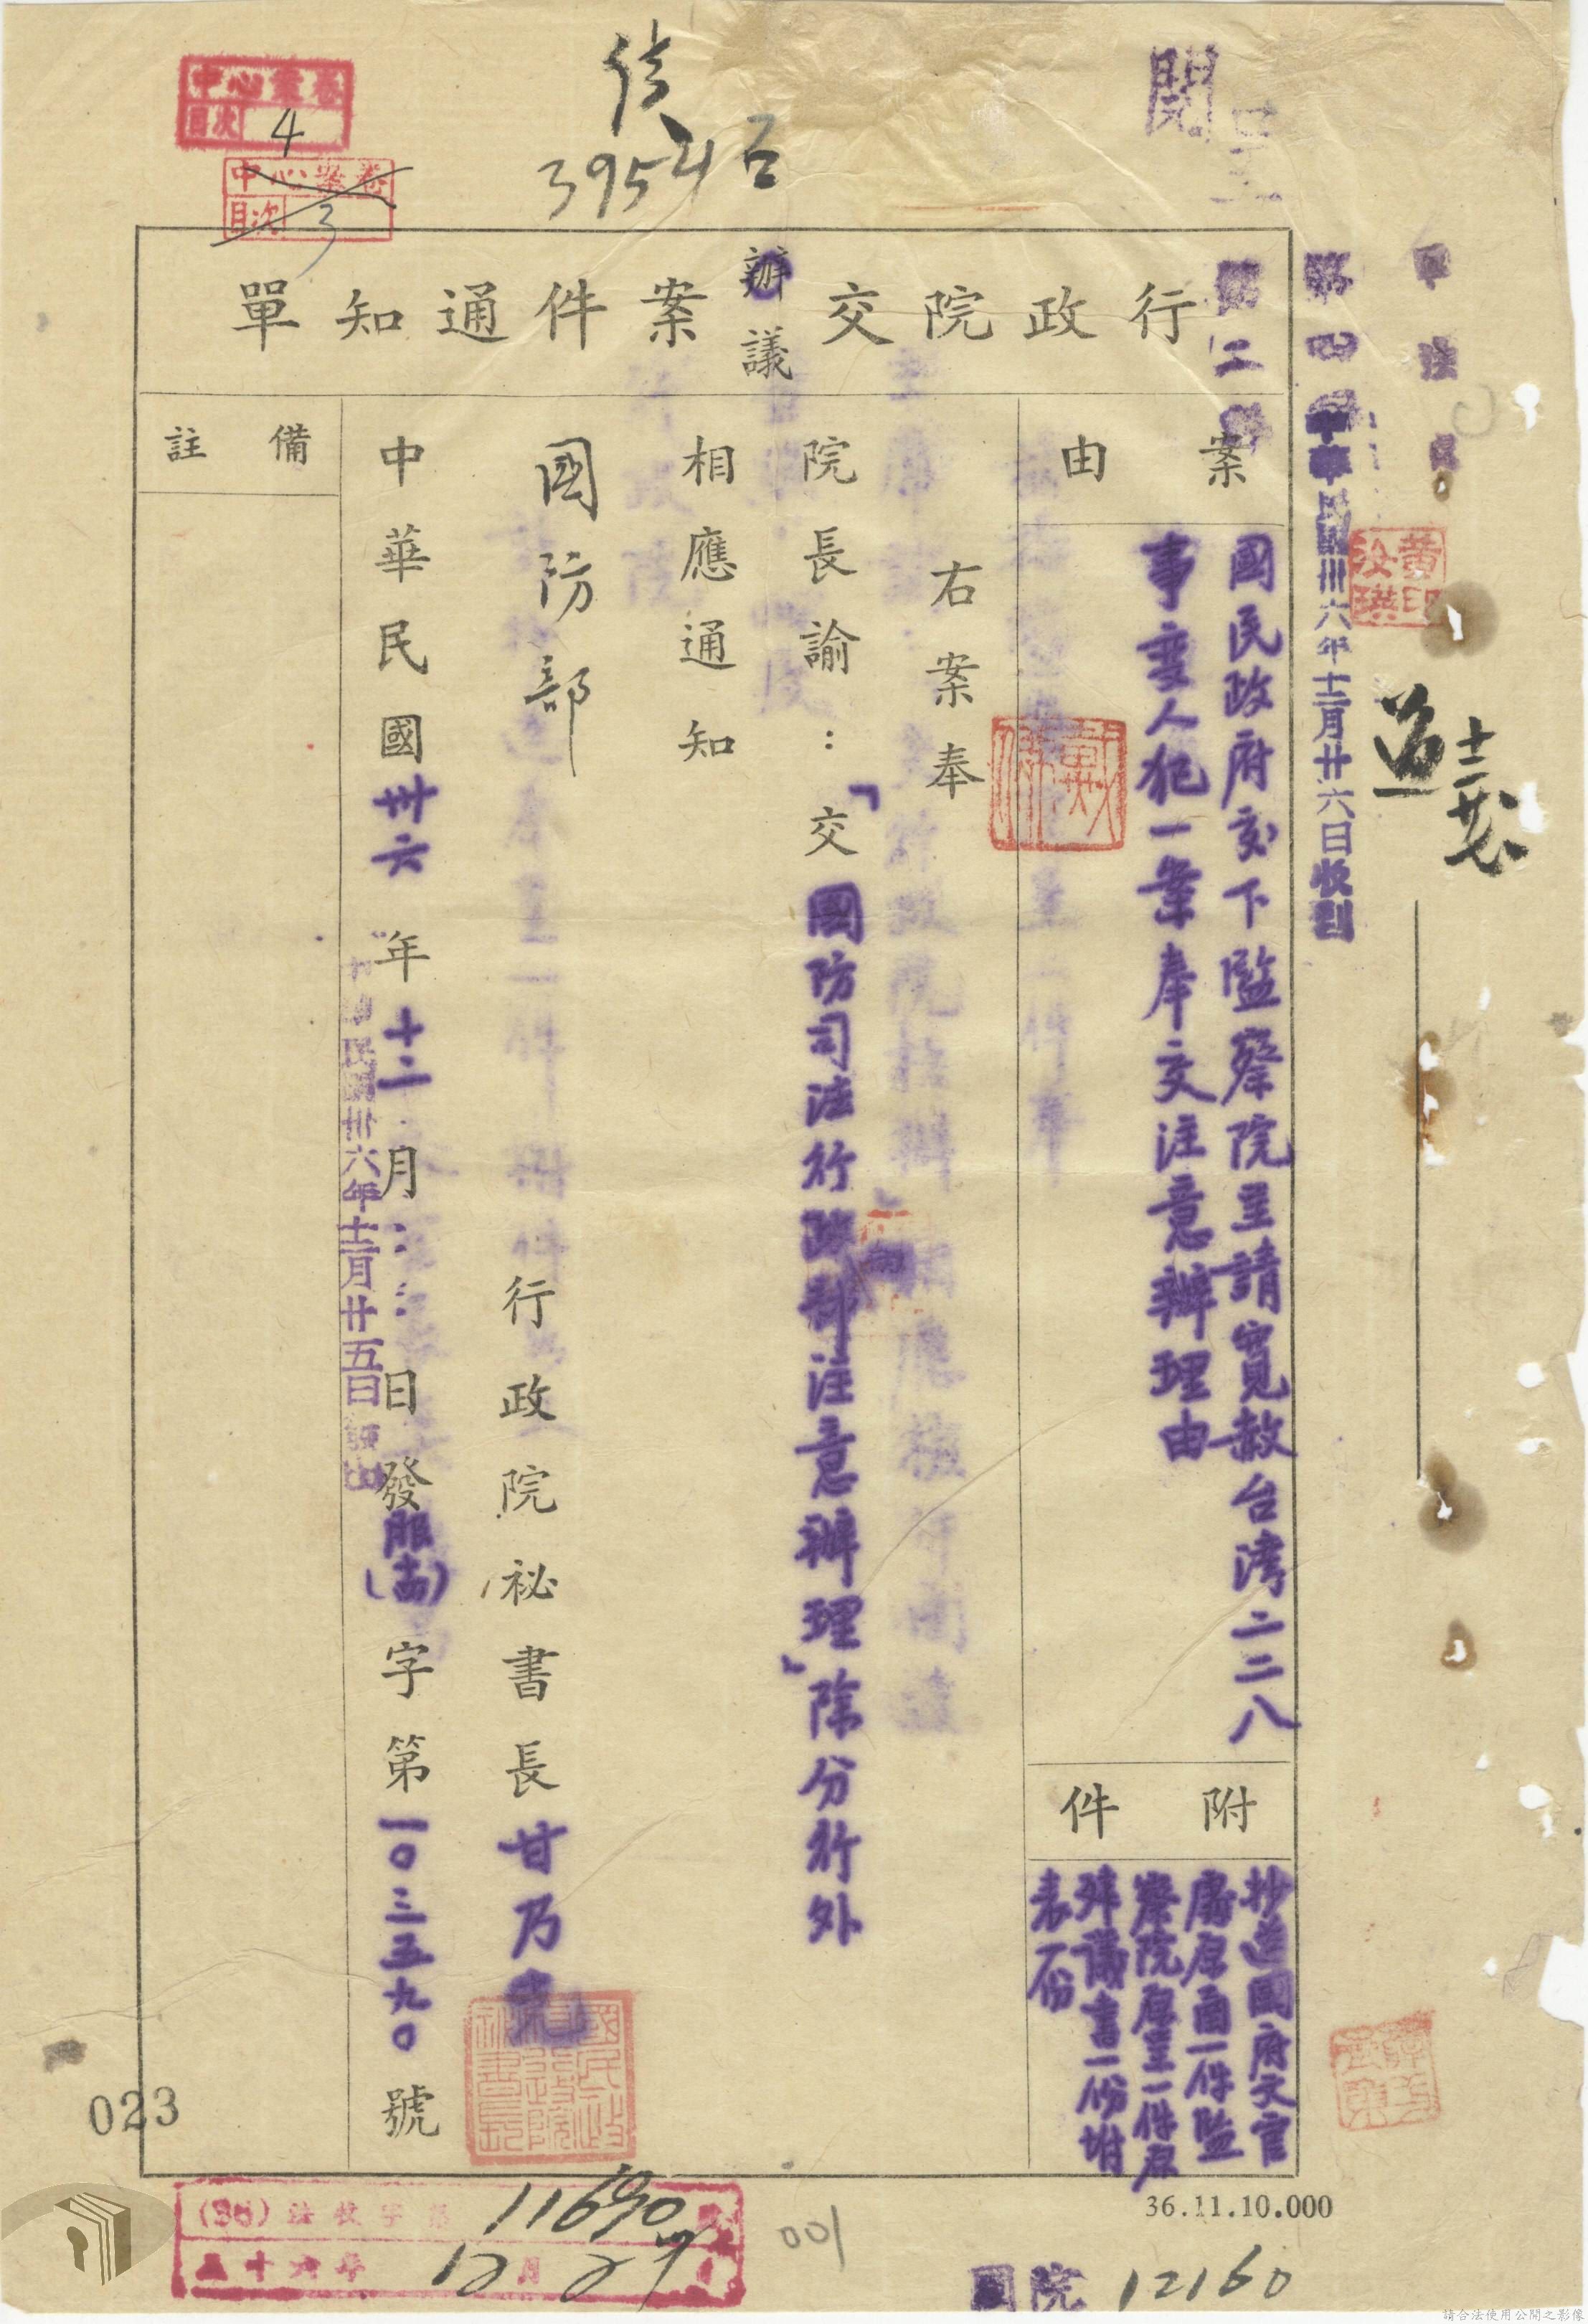 中心案卷
目次 4
中心案卷
目次 3
39521
閱
行政院交辦議案件通知單
第二
中華民國卅六年十二月廿六日收到
黃印
案由
國民政府交下監察院呈請寬赦台湾二二八
事变人犯一案奉交注意辦理由
附件
抄送國府文官
處原函一件監
察院原呈一件原
議書一份附
表一份
右案奉
院長諭：「交國防司法行政部注意辦理」除分行外
相應通知
國防部
行政院祕書長甘乃光
中華民國卅六年十二月 日發服(南)字第一〇三五九〇號
民國卅六年十二月廿五日
備註
023
(36)法收字第 11690 號
三十六年 12 月 27
001
36.11.10.000
院 12160
請合法使用公開之影像